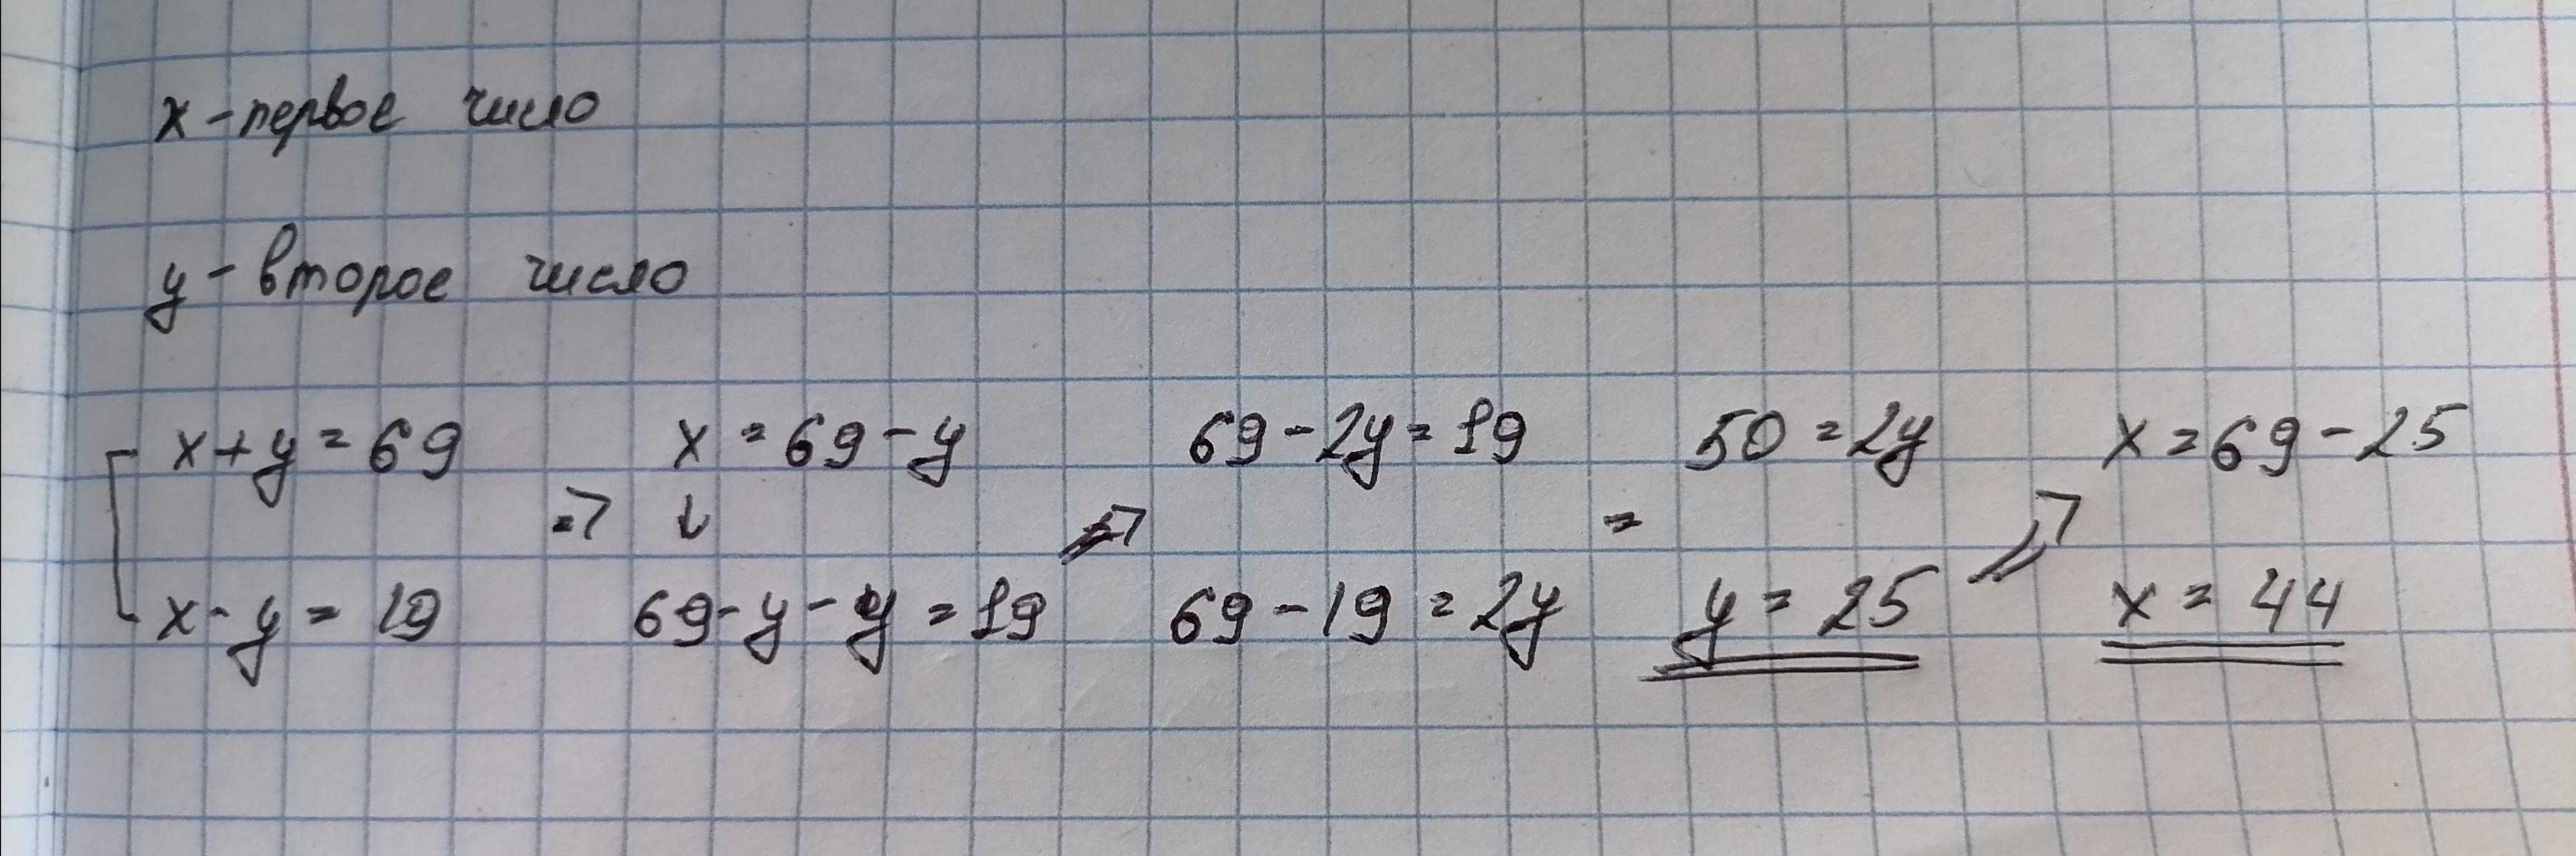 x - первое число
y - второе число
x + y = 69 => x = 69 - y => 69 - 2y = 19 = 50 = 2y => x = 69 - 25
↓
x - y = 19 69 - y - y = 19 69 - 19 = 2y y = 25 x = 44